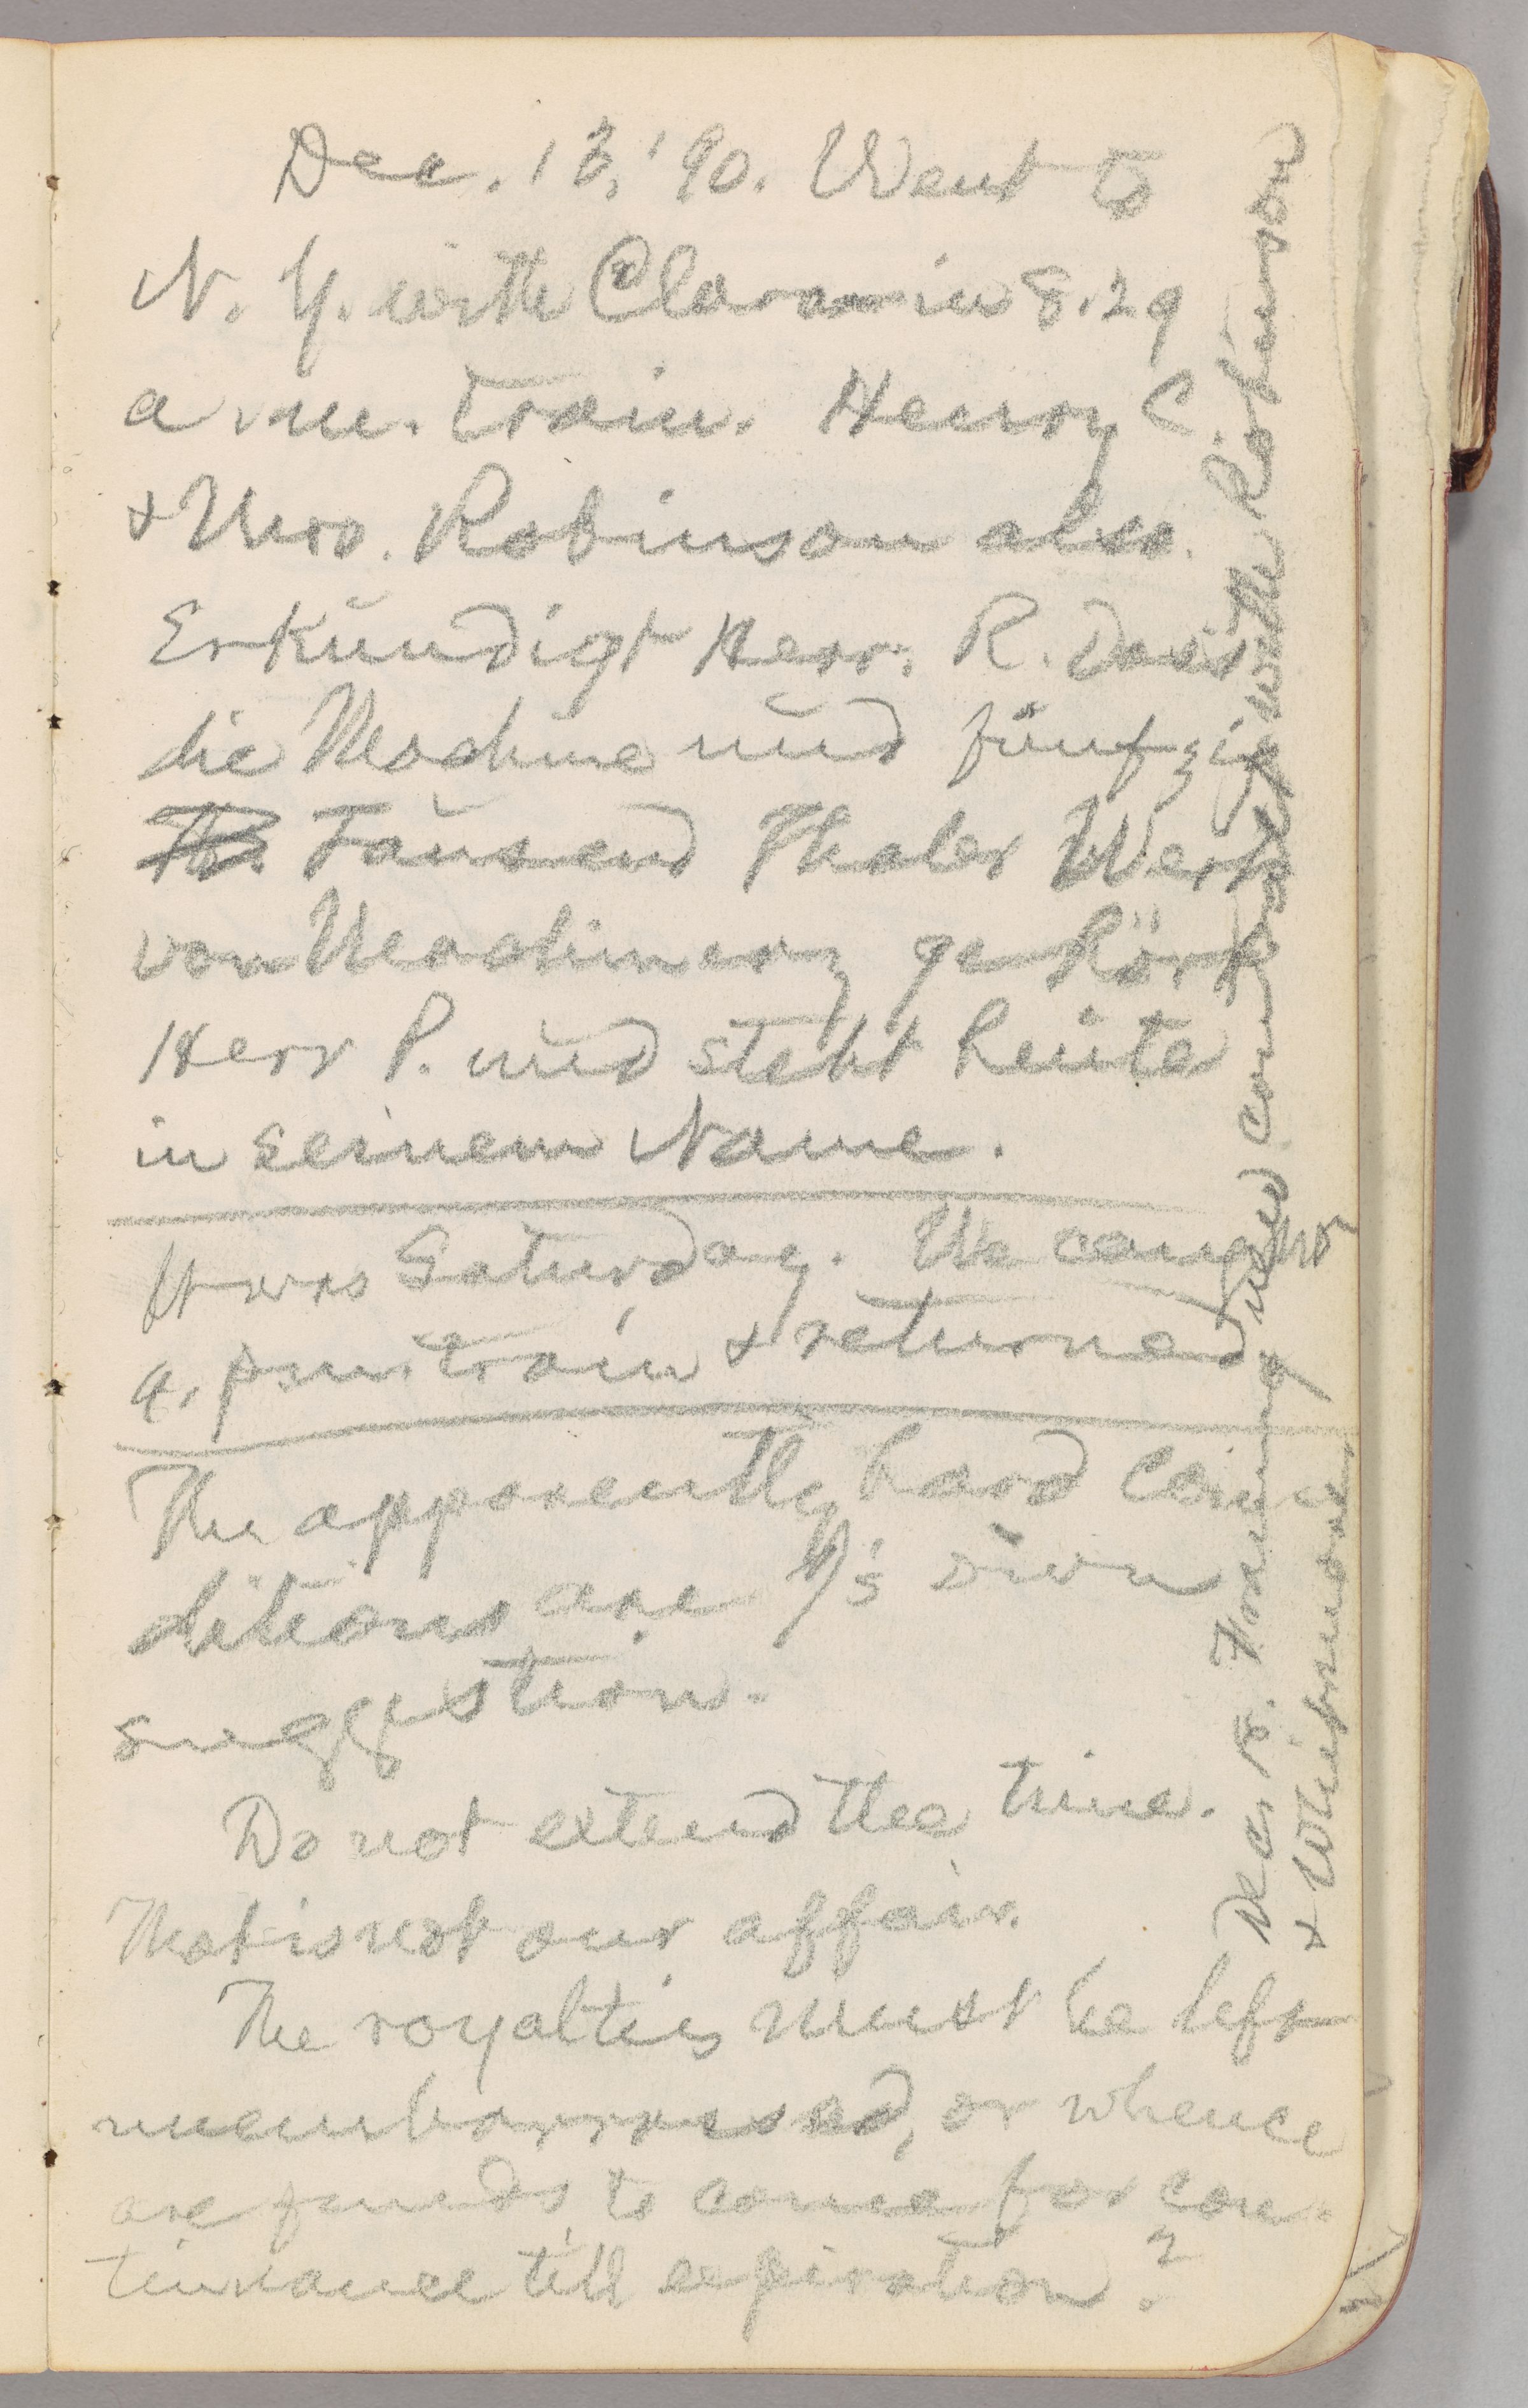 Dec. 13, '90. Went to
N. Y. with Clara in 8.29
a.m. train. Henry C.
& Mrs. Robinson also.
Erkundigt Herr R. dass
die Machine und fünfzig
Tausend Thaler Werth
von Machinery gehört
Herr P. und steht heute
in seinem Name.
It was Saturday. We caught no
4. p.m. train & returned
The apparently hard con-
ditions are J's own
suggestion.
Do not extend the time.
That is not our affair.
The royalties must be left
unembarrassed, or whence
are funds to come for con-
tinuance till expiration?
Dec. 18. Framing new contract with Robinson
& Whitmore.